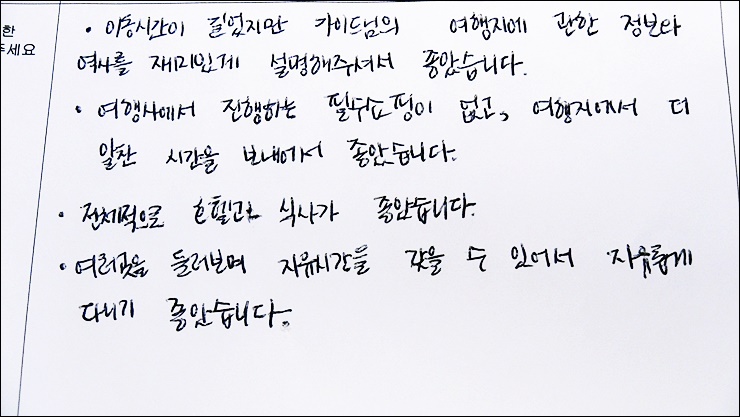 한
주세요
• 이동시간이 길었지만 가이드님의 여행지에 관한 정보와
역사를 재미있게 설명해주셔서 좋았습니다.
• 여행사에서 진행하는 필수쇼핑이 없고, 여행지에서 더
알찬 시간을 보내에서 좋았습니다.
• 전체적으로 호텔과 식사가 좋았습니다.
• 여러곳을 둘러보며 자유시간을 갖을 수 있어서 자유롭게
다니기 좋았습니다.